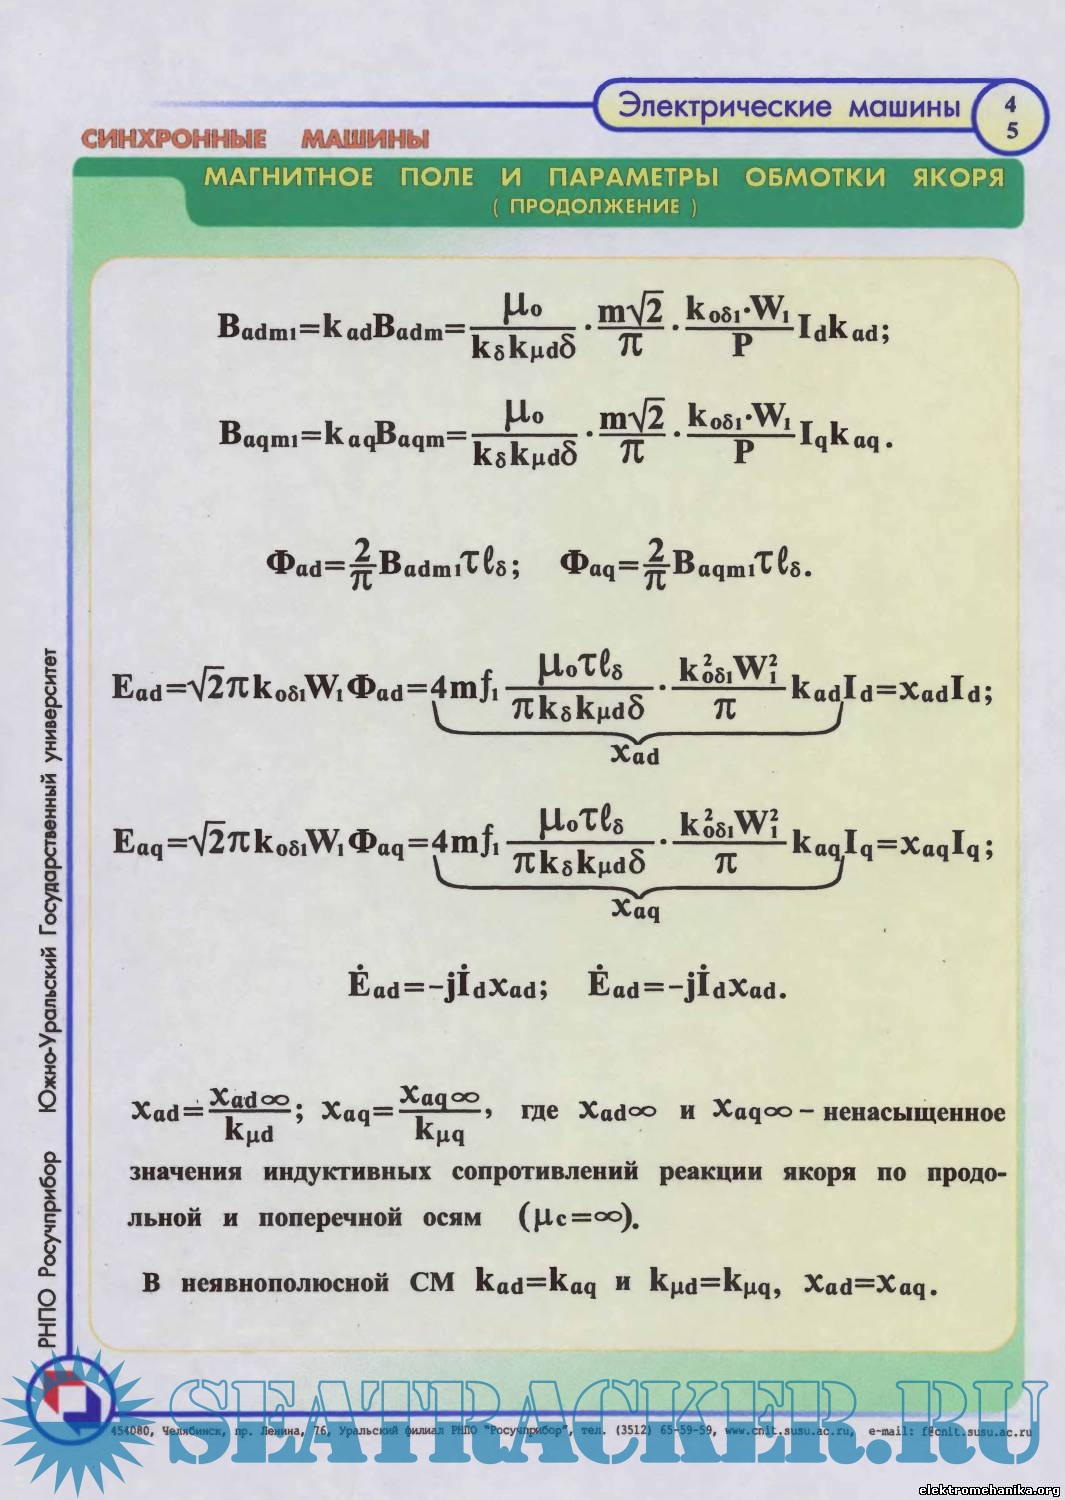 Электрические машины
4
5
СИНХРОННЫЕ МАШИНЫ
МАГНИТНОЕ ПОЛЕ И ПАРАМЕТРЫ ОБМОТКИ ЯКОРЯ
( ПРОДОЛЖЕНИЕ )
Badm1=k adBadm= μo/(kδkμdδ) · m√2/π · koδ1·W1/P Idkad;
Baqm1=kaqBaqm= μo/(kδkμdδ) · m√2/π · koδ1·W1/P Iqkaq.
Φad= 2/π Badm1τℓδ; Φaq= 2/π Baqm1τℓδ.
Ead=√2πkoδ1W1Φad=4mf1 μoτℓδ/(πkδkμdδ) · k²oδ1W²1/π kadId=xadId;
xad
Eaq=√2πkoδ1W1Φaq=4mf1 μoτℓδ/(πkδkμdδ) · k²oδ1W²1/π kaqIq=xaqIq;
xaq
Ėad=-jİdxad; Ėad=-jİdxad.
xad= xad∞/kμd; xaq= xaq∞/kμq, где xad∞ и xaq∞ – ненасыщенное
значения индуктивных сопротивлений реакции якоря по продо-
льной и поперечной осям (μc=∞).
В неявнополюсной СМ kad=kaq и kμd=kμq, xad=xaq.
РНПО Росучприбор Южно-Уральский Государственный университет
SEATRACKER.RU
454080, Челябинск, пр. Ленина, 76, Уральский филиал РНПО "Росучприбор", тел. (3512) 65-59-59, www.cnit.susu.ac.ru, e-mail: f@cnit.susu.ac.ru
elektromehanika.org